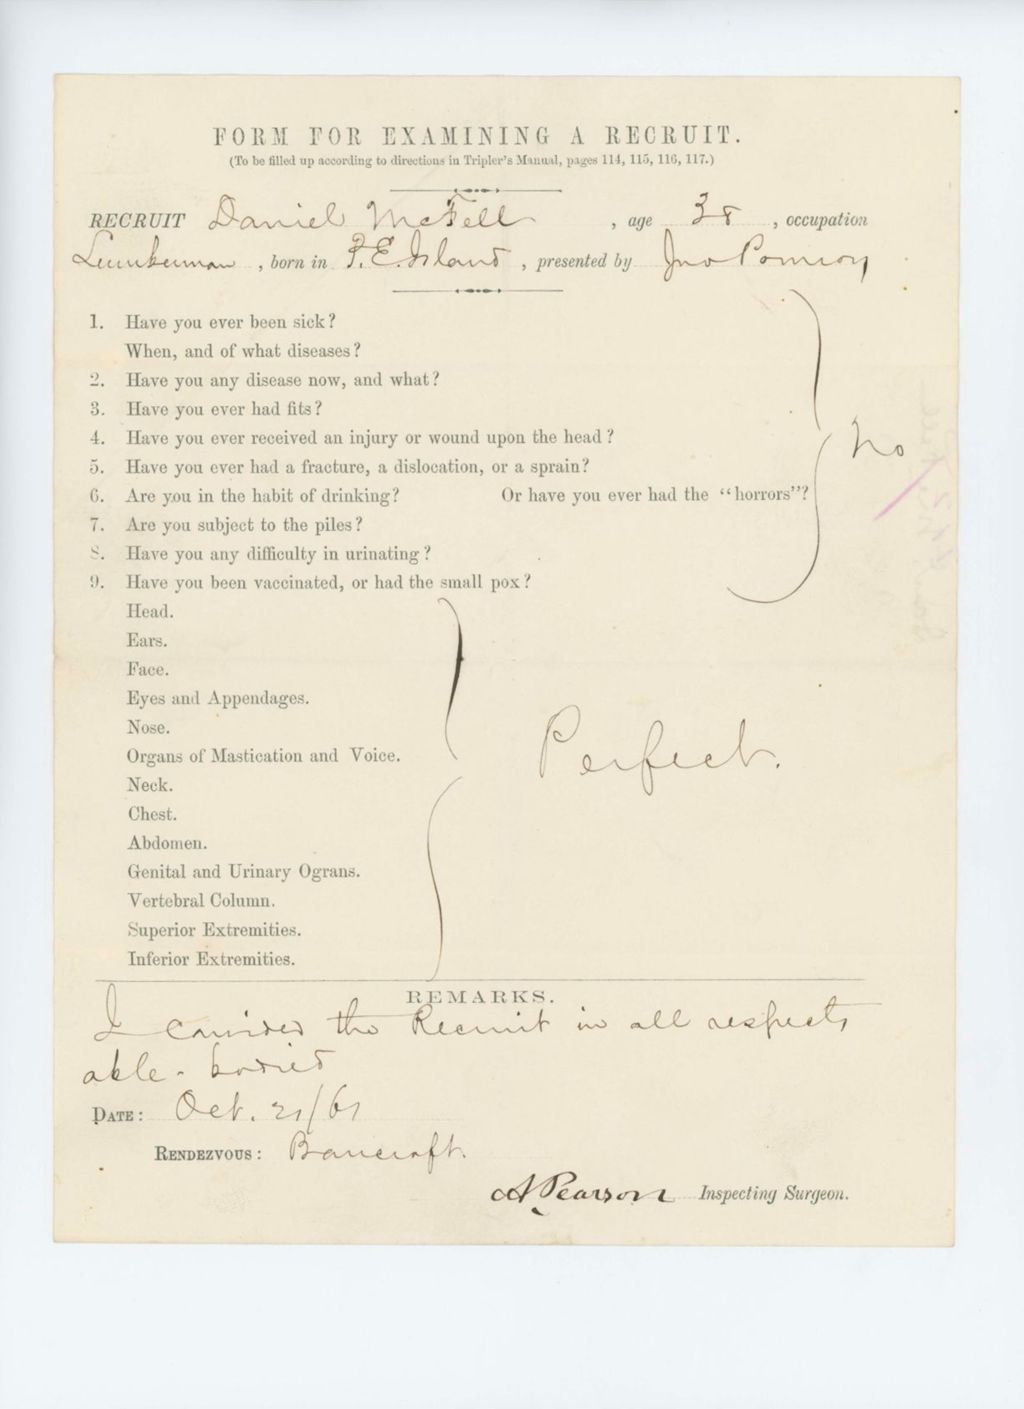 FORM FOR EXAMINING A RECRUIT.
(To be filled up according to directions in Tripler's Manual, pages 114, 115, 116, 117.)
RECRUIT Daniel McFell , age 38 , occupation
Lumberman , born in P. E. Island , presented by Jno Pomroy
1. Have you ever been sick?
When, and of what diseases?
2. Have you any disease now, and what?
3. Have you ever had fits?
4. Have you ever received an injury or wound upon the head?
No
5. Have you ever had a fracture, a dislocation, or a sprain?
6. Are you in the habit of drinking? Or have you ever had the "horrors"?
7. Are you subject to the piles?
8. Have you any difficulty in urinating?
9. Have you been vaccinated, or had the small pox?
Head.
Ears.
Face.
Eyes and Appendages.
Nose.
Organs of Mastication and Voice.
Perfect.
Neck.
Chest.
Abdomen.
Genital and Urinary Ograns.
Vertebral Column.
Superior Extremities.
Inferior Extremities.
REMARKS.
I consider the Recruit in all respects
able-bodied
DATE: Oct. 21/61
RENDEZVOUS: Bancroft.
A Pearson Inspecting Surgeon.